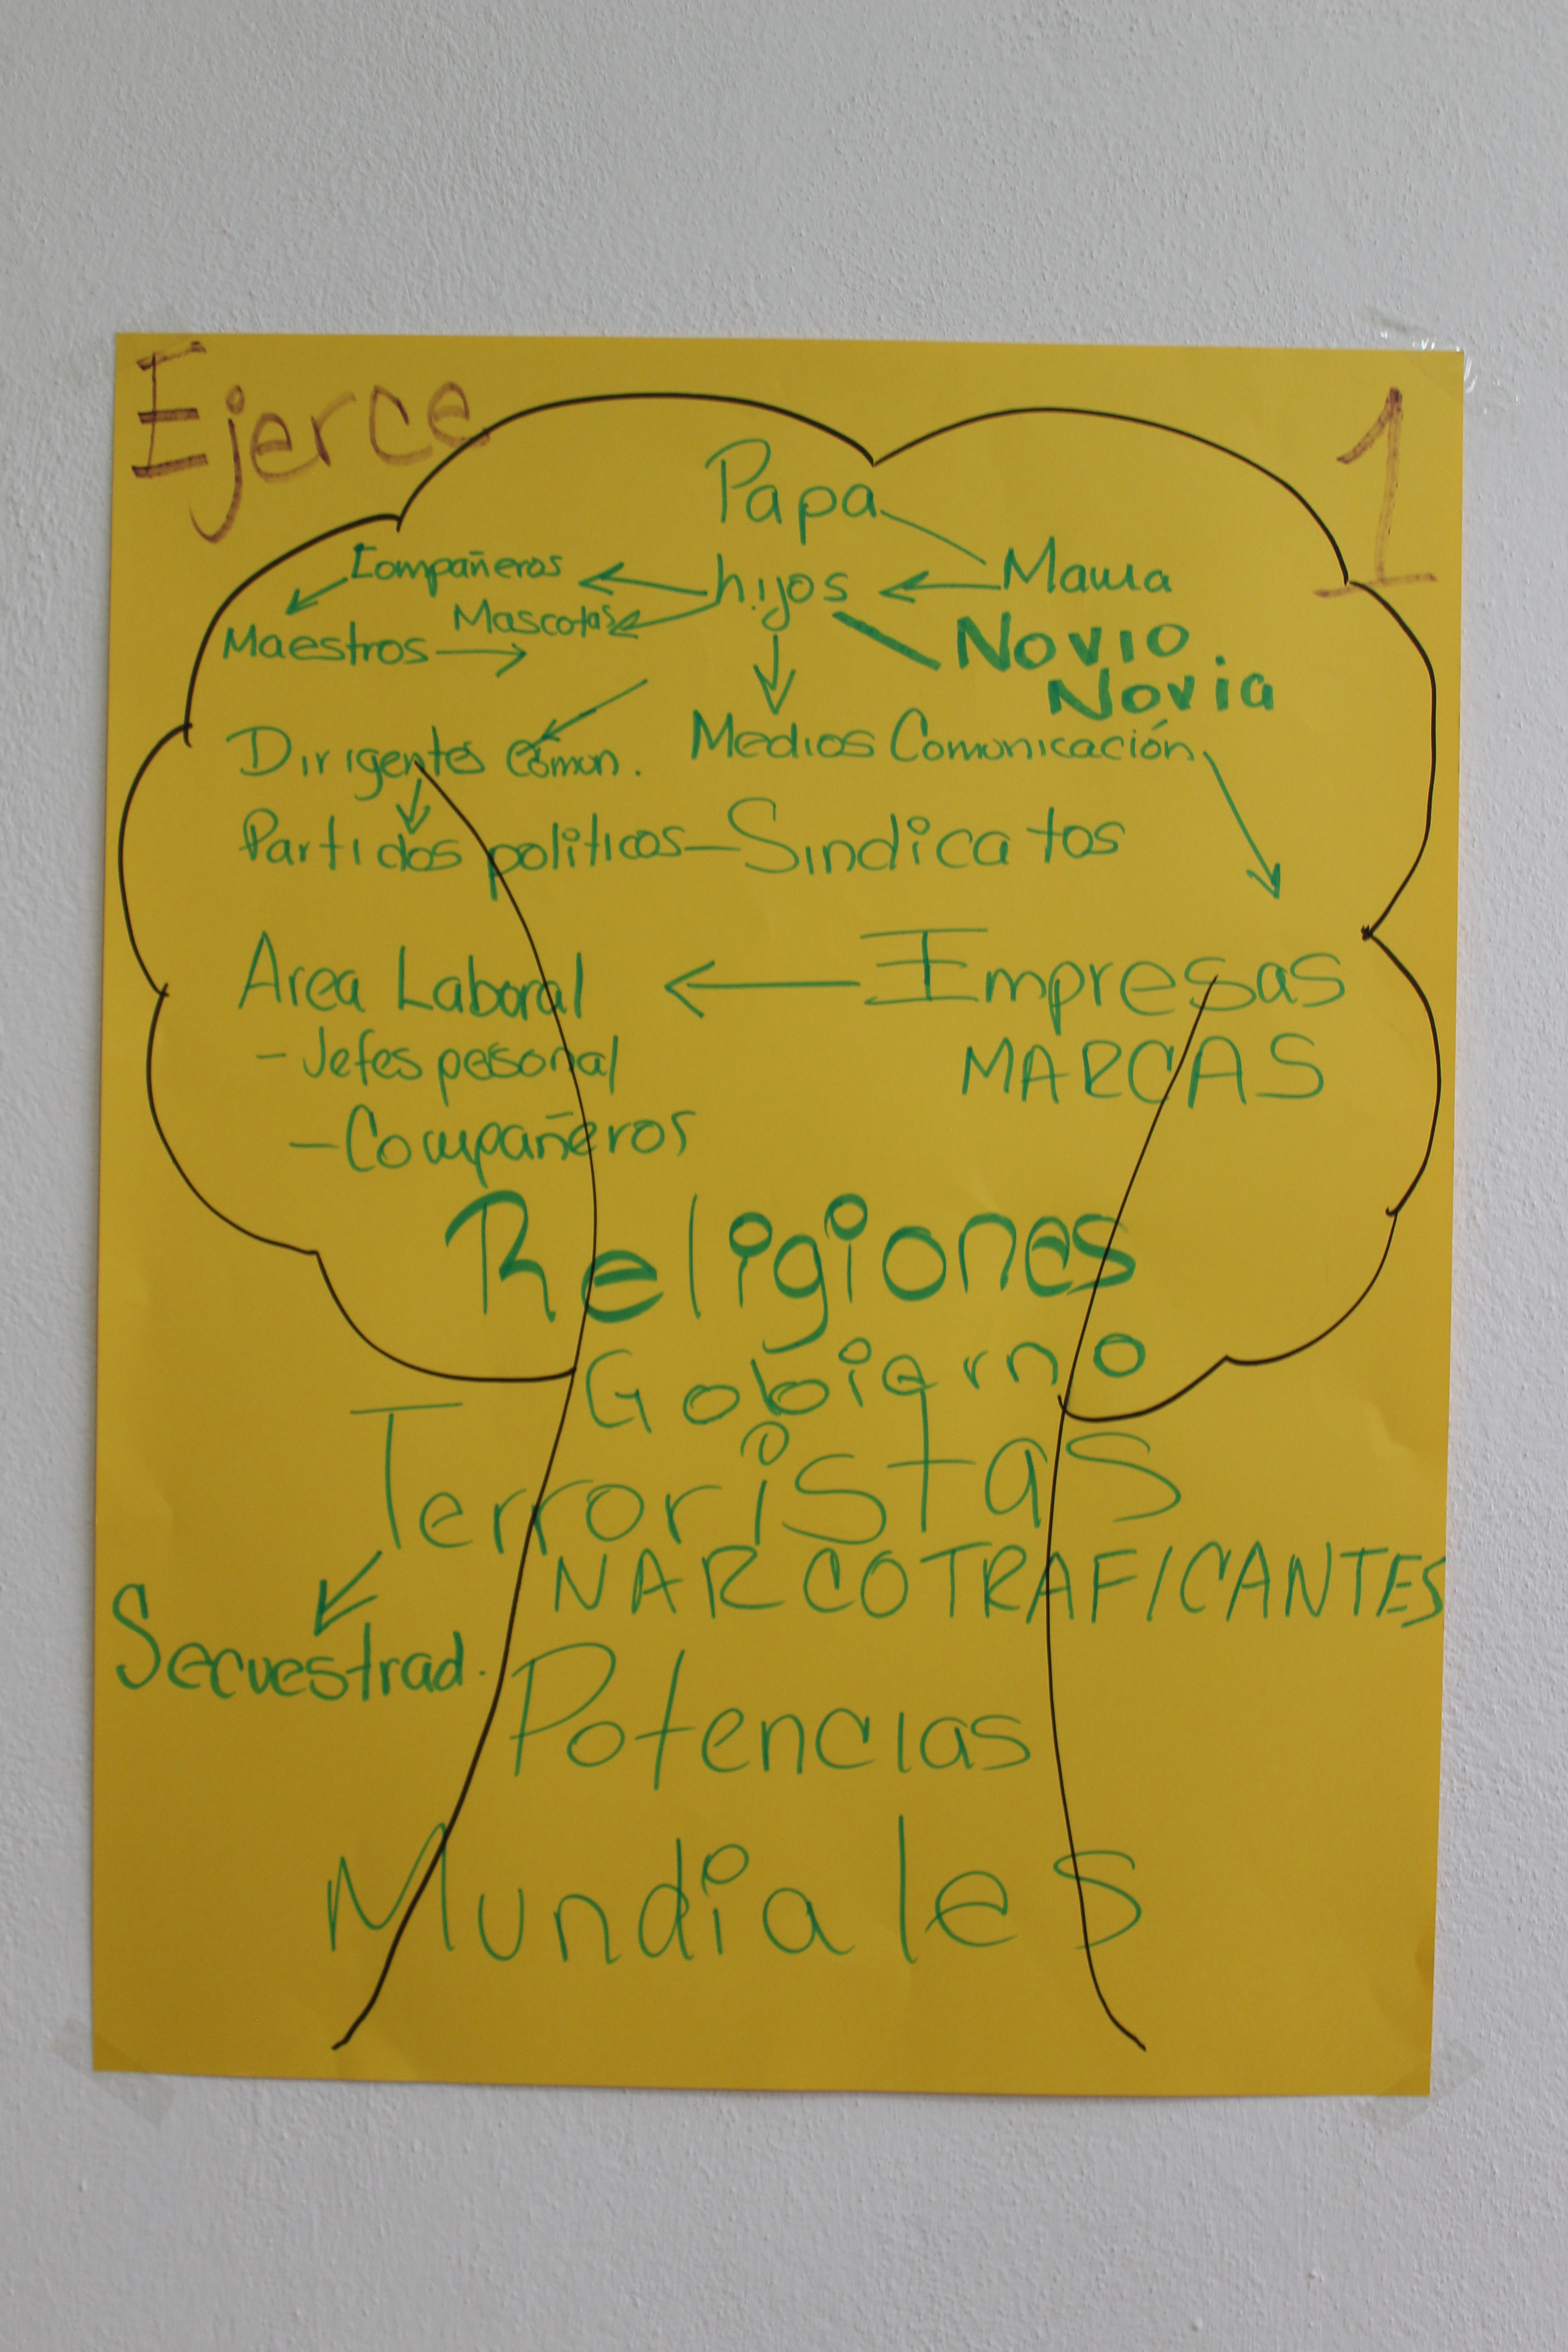 Ejerce
1
Papa
Compañeros
hijos
Mama
Mascotas
Maestros
Novio
Novia
Dirigentes Comun.
Medios Comunicación
Partidos politicos - Sindicatos
Area Laboral
Empresas
- Jefes pesonal
MARCAS
- Compañeros
Religiones
Gobierno
Terroristas
NARCOTRAFICANTES
Secuestrad.
Potencias
Mundiales